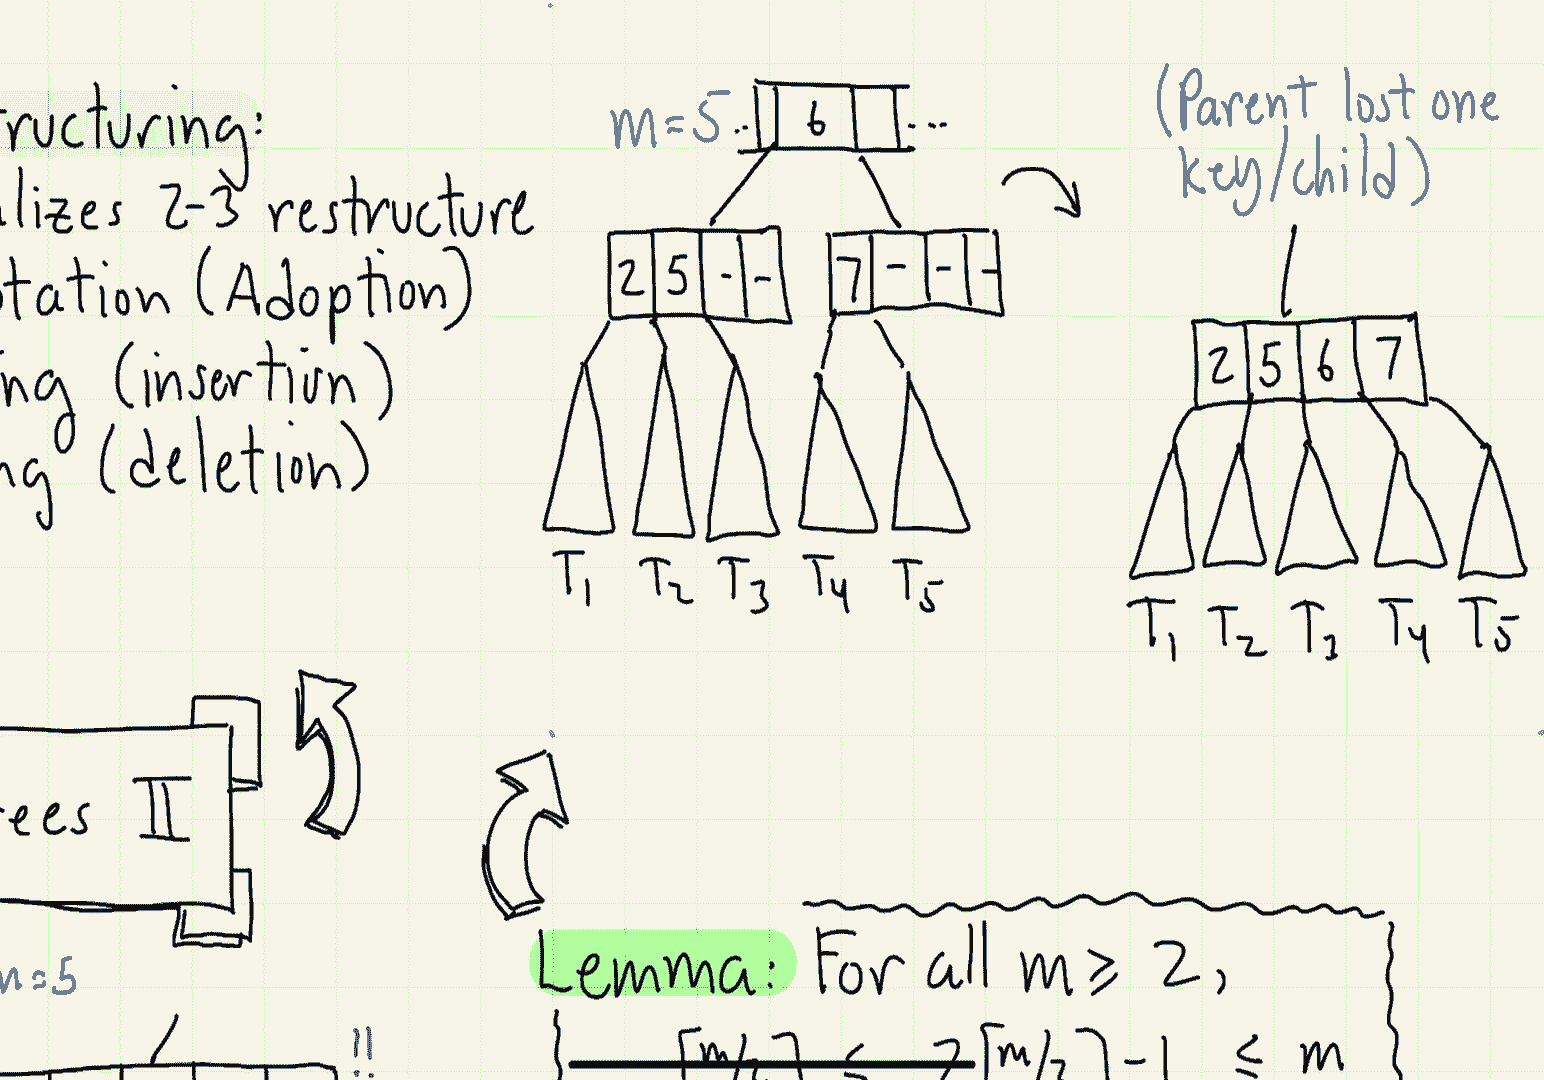 ructuring:
lizes 2-3 restructure
tation (Adoption)
ng (insertion)
ng (deletion)
m=5
6
2 5 - -
7 - - -
T1 T2 T3 T4 T5
(Parent lost one
key/child)
2 5 6 7
T1 T2 T3 T4 T5
ees II
=5
!!
Lemma: For all m ≥ 2,
⌈m/2⌉ ≤ 2⌈m/2⌉-1 ≤ m